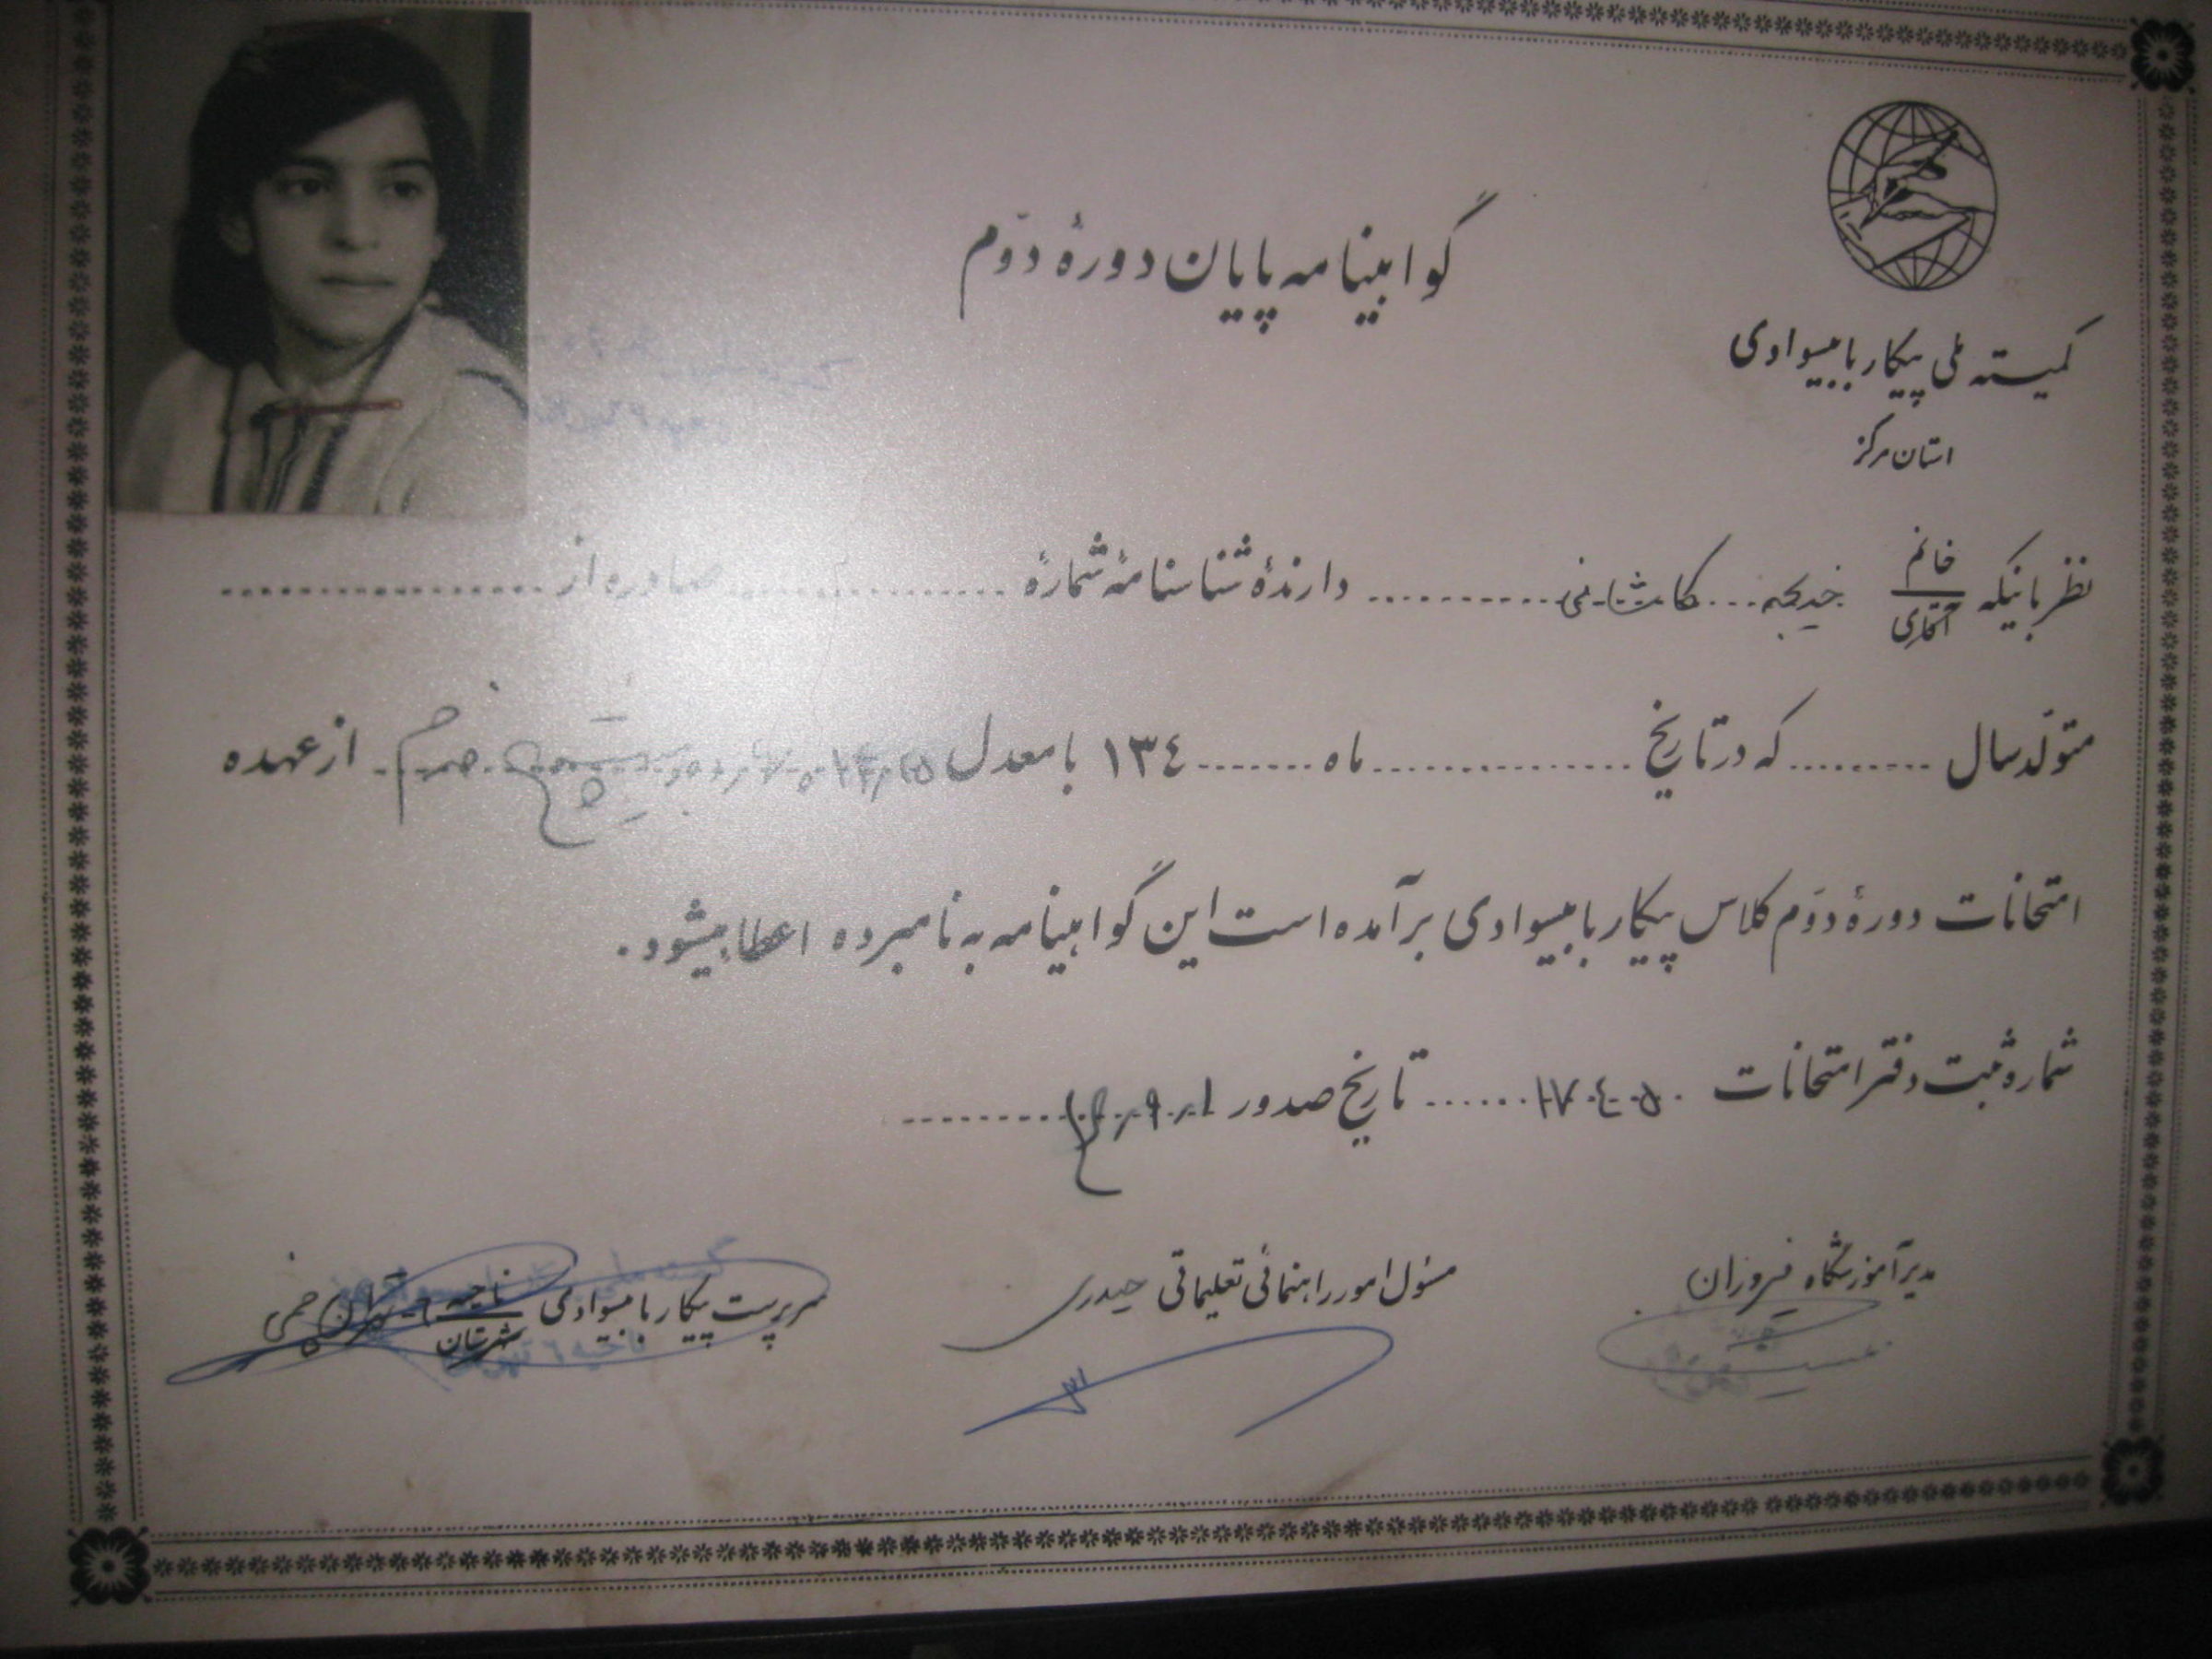 گواهینامه پایان دورهٔ دوّم
کمیته ملی پیکار با بیسوادی
استان مرکز
نظر باینکه خانم / آقای خدیجه کاشانی دارندهٔ شناسنامهٔ شمارهٔ .......... صادره از ..........
متولّد سال .......... که در تاریخ .......... ماه .......... ۱۳۴ با معدل از عهده
امتحانات دورهٔ دوّم کلاس پیکار با بیسوادی برآمده است این گواهینامه به نامبرده اعطا میشود.
شماره ثبت دفتر امتحانات ۱۷۴۰۵۰ تاریخ صدور
مدیر آموزشگاه فروزان
مسئول امور راهنمائی تعلیماتی حیدری
سرپرست پیکار با بیسوادی ناحیه / شهرستان ۶ تهران